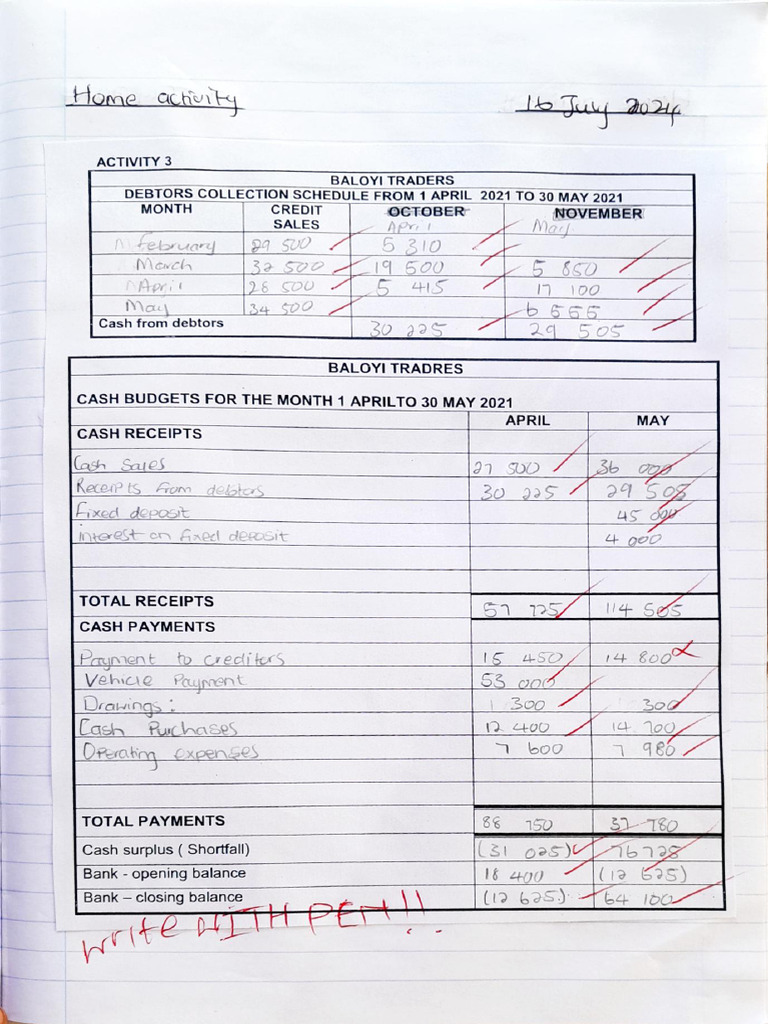 Home activity 16 July 2024
ACTIVITY 3
BALOYI TRADERS
DEBTORS COLLECTION SCHEDULE FROM 1 APRIL 2021 TO 30 MAY 2021
MONTH CREDIT SALES OCTOBER NOVEMBER
April May
February 29 500 5 310
March 32 500 19 500 5 850
April 28 500 5 415 17 100
May 34 500 6 555
Cash from debtors 30 225 29 505
BALOYI TRADRES
CASH BUDGETS FOR THE MONTH 1 APRILTO 30 MAY 2021
APRIL MAY
CASH RECEIPTS
Cash Sales 27 500 36 000
Receipts from debtors 30 225 29 505
Fixed deposit 45 000
interest on fixed deposit 4 000
TOTAL RECEIPTS 57 725 114 505
CASH PAYMENTS
Payment to creditors 15 450 14 800
Vehicle Payment 53 000
Drawings: 300 300
Cash Purchases 12 400 14 700
Operating expenses 7 600 7 980
TOTAL PAYMENTS 88 750 37 780
Cash surplus ( Shortfall) (31 025) 76 725
Bank - opening balance 18 400 (12 625)
Bank – closing balance (12 625) 64 100
write WITH PEN!!